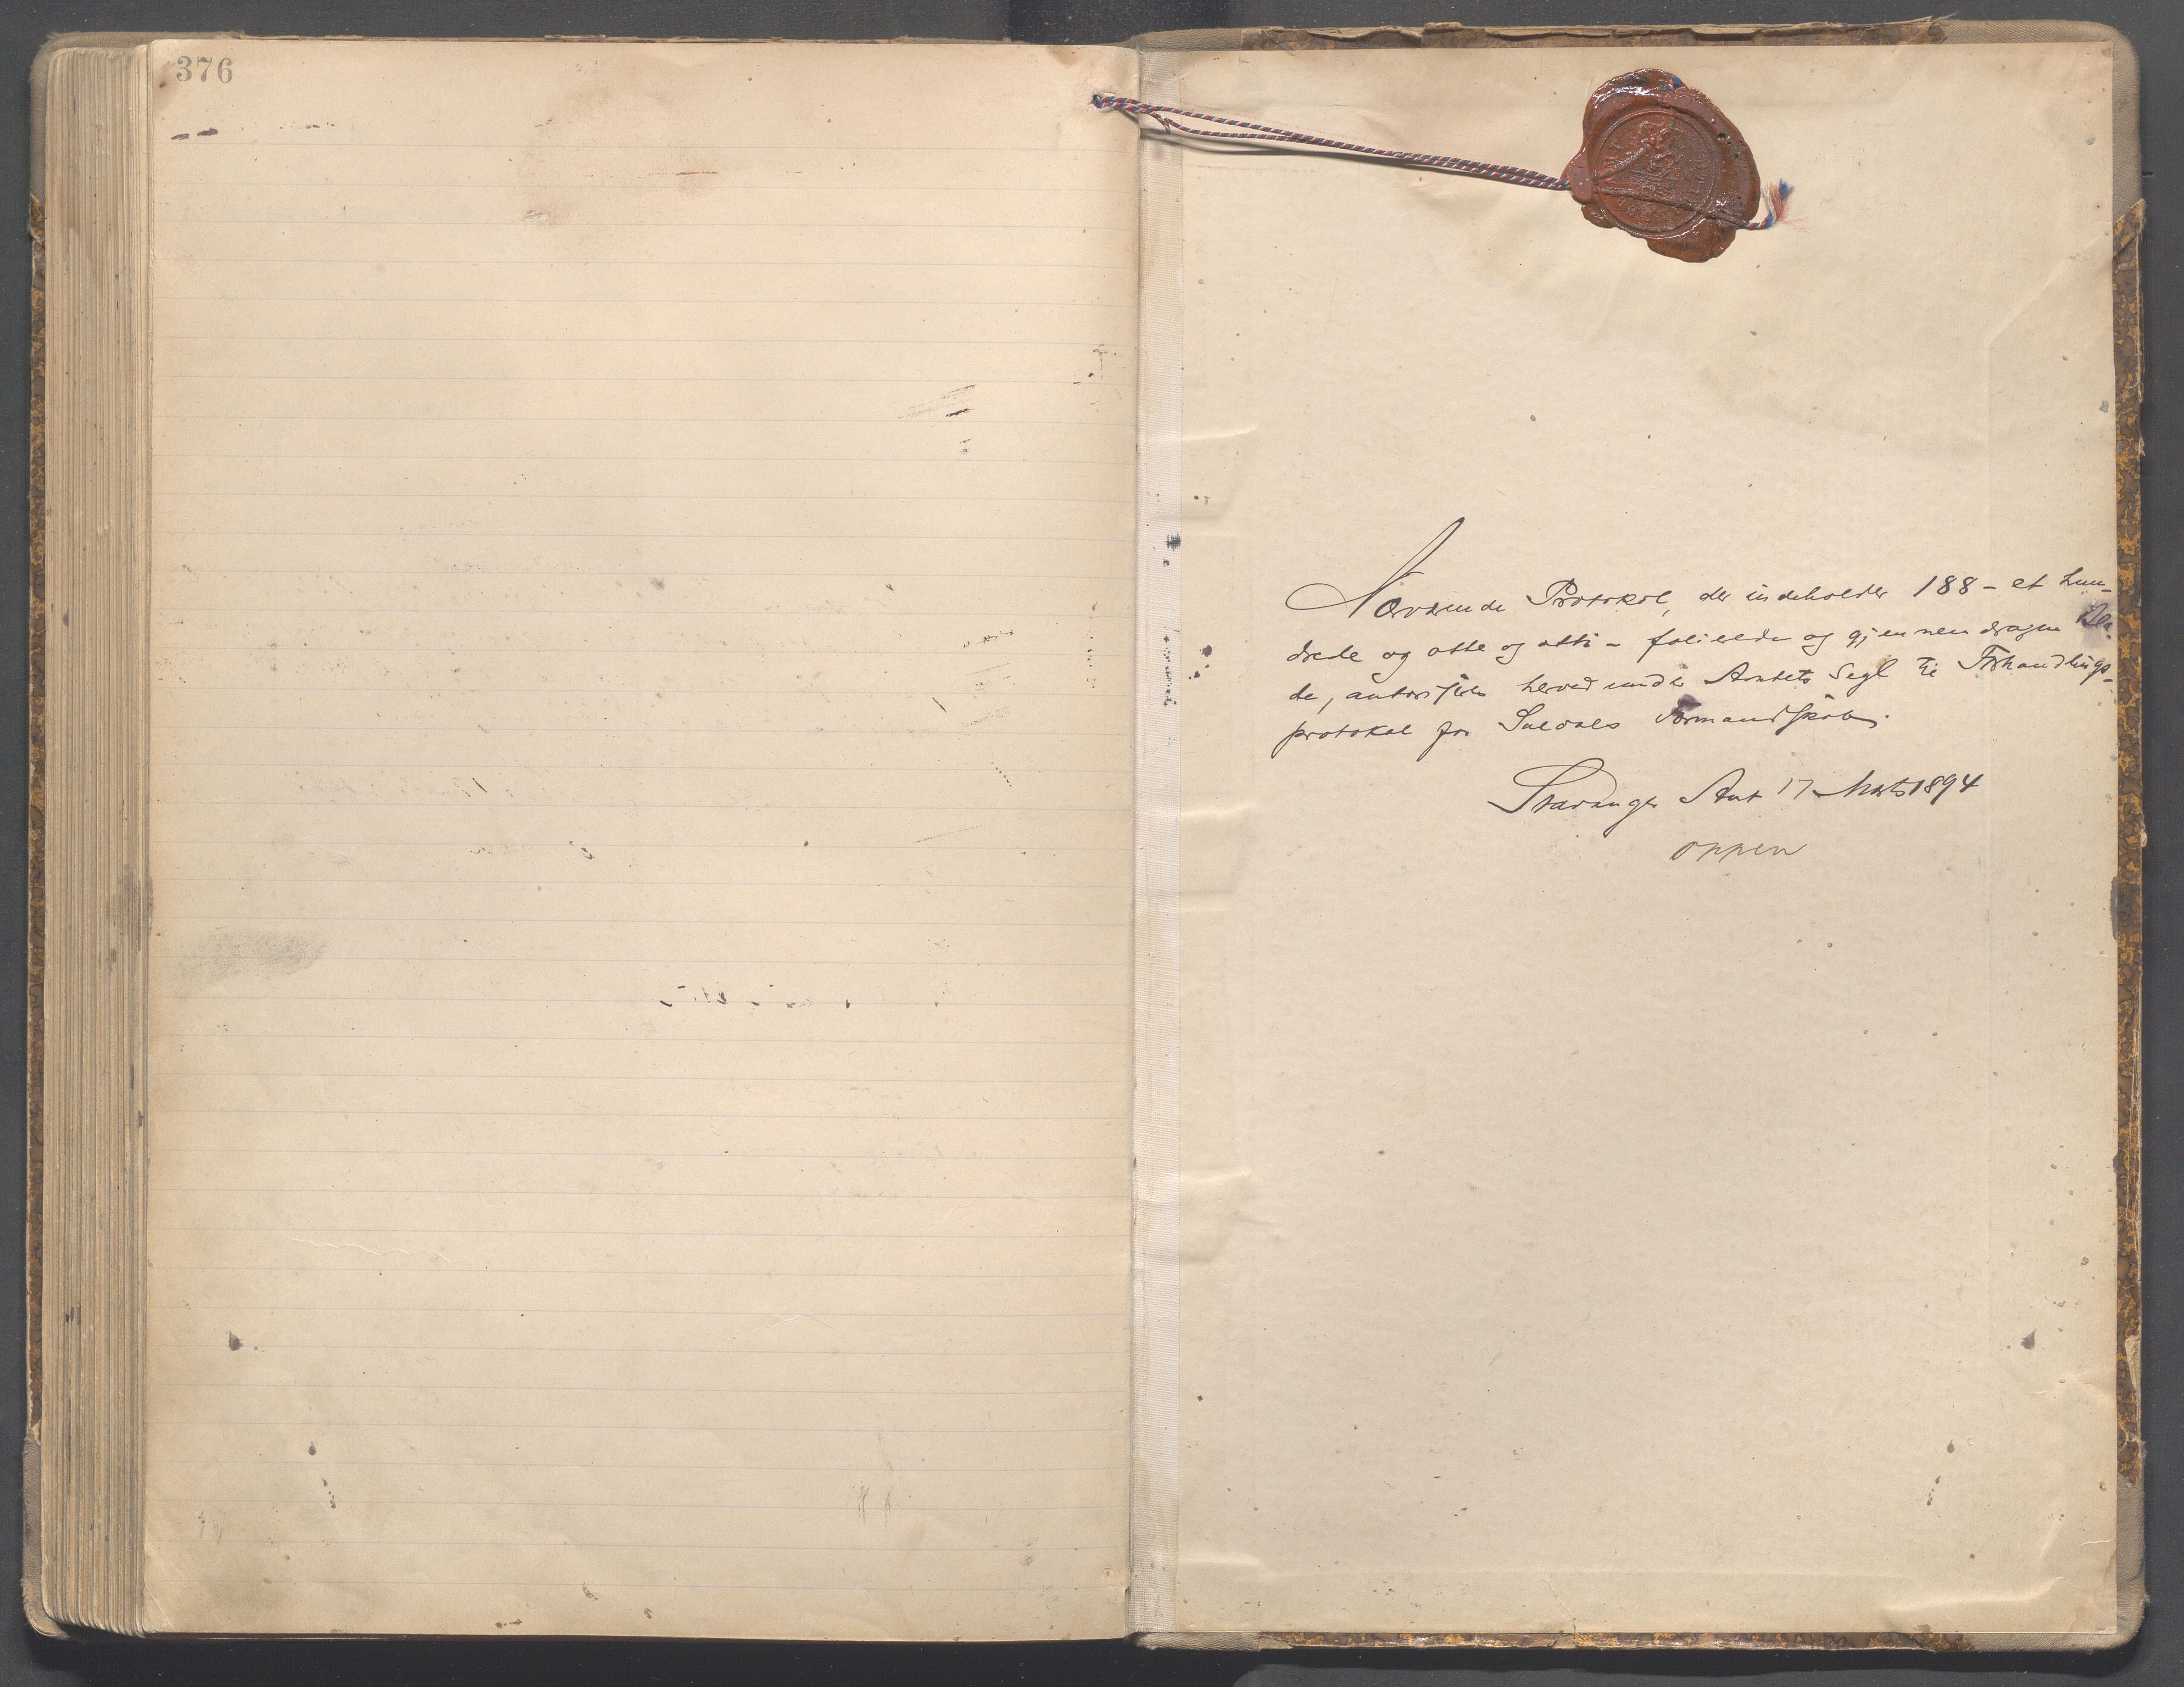 376
Nærværende Protokol, der indeholder 188 - et hun-
drede og otte og otti - folierede og gjennemdragen Bla-
de, autoriseres herved under Amtets Segl til Forhandlings-
protokol for Suldals Formandskab.
Stavanger Amt 17 Marts 1894
Oppen